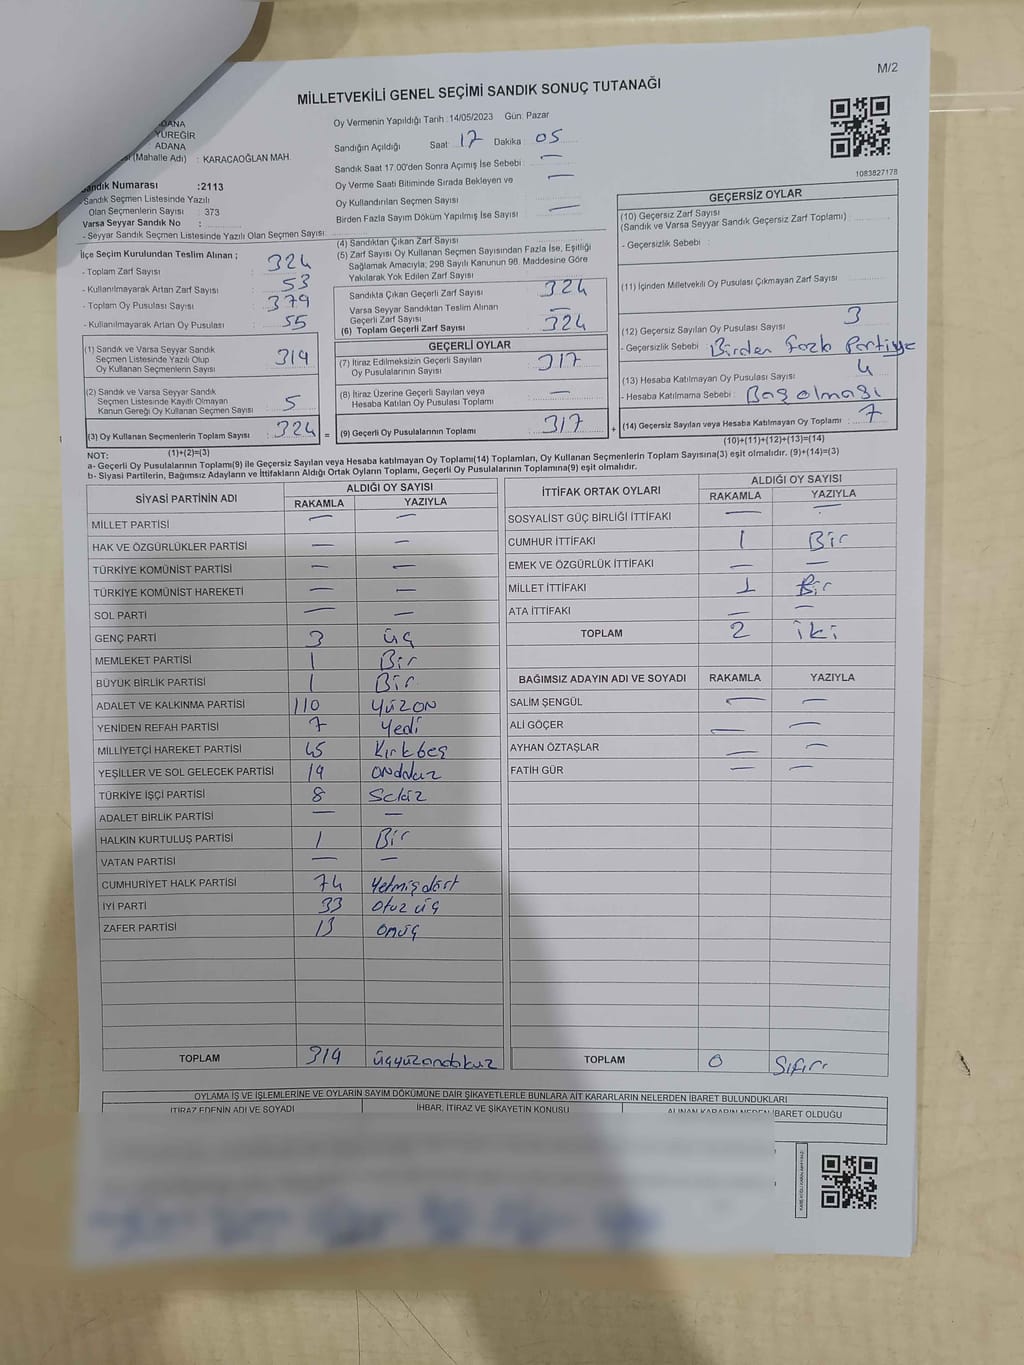 M/2
MİLLETVEKİLİ GENEL SEÇİMİ SANDIK SONUÇ TUTANAĞI
ADANA
YÜREĞİR
: ADANA
(Mahalle Adı) : KARACAOĞLAN MAH.
Sandık Numarası :2113
- Sandık Seçmen Listesinde Yazılı
Olan Seçmenlerin Sayısı : 373
Varsa Seyyar Sandık No :
- Seyyar Sandık Seçmen Listesinde Yazılı Olan Seçmen Sayısı
Oy Vermenin Yapıldığı Tarih :14/05/2023 Gün: Pazar
Sandığın Açıldığı Saat: 17 Dakika : 05
Sandık Saat 17.00'den Sonra Açımış İse Sebebi : —
Oy Verme Saati Bitiminde Sırada Bekleyen ve —
Oy Kullandırılan Seçmen Sayısı
Birden Fazla Sayım Döküm Yapılmış İse Sayısı : —
1083827178
İlçe Seçim Kurulundan Teslim Alınan ;
- Toplam Zarf Sayısı : 324
- Kullanılmayarak Artan Zarf Sayısı : 53
- Toplam Oy Pusulası Sayısı : 379
- Kullanılmayarak Artan Oy Pusulası : 55
(1) Sandık ve Varsa Seyyar Sandık
Seçmen Listesinde Yazılı Olup
Oy Kullanan Seçmenlerin Sayısı : 319
(2) Sandık ve Varsa Seyyar Sandık
Seçmen Listesinde Kayıtlı Olmayan
Kanun Gereği Oy Kullanan Seçmen Sayısı : 5
(3) Oy Kullanan Seçmenlerin Toplam Sayısı : 324 =
(1)+(2)=(3)
(4) Sandıktan Çıkan Zarf Sayısı
(5) Zarf Sayısı Oy Kullanan Seçmen Sayısından Fazla İse, Eşitliği
Sağlamak Amacıyla, 298 Sayılı Kanunun 98. Maddesine Göre
Yakılarak Yok Edilen Zarf Sayısı
Sandıkta Çıkan Geçerli Zarf Sayısı : 324
Varsa Seyyar Sandıktan Teslim Alınan
Geçerli Zarf Sayısı : —
(6) Toplam Geçerli Zarf Sayısı : 324
GEÇERLİ OYLAR
(7) İtiraz Edilmeksizin Geçerli Sayılan
Oy Pusulalarının Sayısı : 317
(8) İtiraz Üzerine Geçerli Sayılan veya
Hesaba Katılan Oy Pusulası Toplamı : —
(9) Geçerli Oy Pusulalarının Toplamı : 317 +
GEÇERSİZ OYLAR
(10) Geçersiz Zarf Sayısı
(Sandık ve Varsa Seyyar Sandık Geçersiz Zarf Toplamı) :
- Geçersizlik Sebebi :
(11) İçinden Milletvekili Oy Pusulası Çıkmayan Zarf Sayısı
(12) Geçersiz Sayılan Oy Pusulası Sayısı : 3
- Geçersizlik Sebebi : Birden fazla Partiye
(13) Hesaba Katılmayan Oy Pusulası Sayısı : 4
- Hesaba Katılmama Sebebi : Boş olması
(14) Geçersiz Sayılan veya Hesaba Katılmayan Oy Toplamı : 7
(10)+(11)+(12)+(13)=(14)
NOT:
a- Geçerli Oy Pusulalarının Toplamı(9) ile Geçersiz Sayılan veya Hesaba katılmayan Oy Toplamı(14) Toplamları, Oy Kullanan Seçmenlerin Toplam Sayısına(3) eşit olmalıdır. (9)+(14)=(3)
b- Siyasi Partilerin, Bağımsız Adayların ve İttifakların Aldığı Ortak Oyların Toplamı, Geçerli Oy Pusulalarının Toplamına(9) eşit olmalıdır.
SİYASİ PARTİNİN ADI ALDIĞI OY SAYISI
RAKAMLA YAZIYLA
MİLLET PARTİSİ — —
HAK VE ÖZGÜRLÜKLER PARTİSİ — —
TÜRKİYE KOMÜNİST PARTİSİ — —
TÜRKİYE KOMÜNİST HAREKETİ — —
SOL PARTİ — —
GENÇ PARTİ 3 üç
MEMLEKET PARTİSİ 1 Bir
BÜYÜK BİRLİK PARTİSİ 1 Bir
ADALET VE KALKINMA PARTİSİ 110 yüzon
YENİDEN REFAH PARTİSİ 7 yedi
MİLLİYETÇİ HAREKET PARTİSİ 45 Kırkbeş
YEŞİLLER VE SOL GELECEK PARTİSİ 19 ondokuz
TÜRKİYE İŞÇİ PARTİSİ 8 Sekiz
ADALET BİRLİK PARTİSİ — —
HALKIN KURTULUŞ PARTİSİ 1 Bir
VATAN PARTİSİ — —
CUMHURİYET HALK PARTİSİ 74 yetmişdört
İYİ PARTİ 33 otuz üç
ZAFER PARTİSİ 13 onüç
TOPLAM 319 üçyüzondokuz
İTTİFAK ORTAK OYLARI ALDIĞI OY SAYISI
RAKAMLA YAZIYLA
SOSYALİST GÜÇ BİRLİĞİ İTTİFAKI — —
CUMHUR İTTİFAKI 1 Bir
EMEK VE ÖZGÜRLÜK İTTİFAKI — —
MİLLET İTTİFAKI 1 Bir
ATA İTTİFAKI — —
TOPLAM 2 iki
BAĞIMSIZ ADAYIN ADI VE SOYADI RAKAMLA YAZIYLA
SALİM ŞENGÜL — —
ALİ GÖÇER — —
AYHAN ÖZTAŞLAR — —
FATİH GÜR — —
TOPLAM 0 Sıfır
OYLAMA İŞ VE İŞLEMLERİNE VE OYLARIN SAYIM DÖKÜMÜNE DAİR ŞİKAYETLERLE BUNLARA AİT KARARLARIN NELERDEN İBARET BULUNDUKLARI
İTİRAZ EDENİN ADI VE SOYADI İHBAR, İTİRAZ VE ŞİKAYETİN KONUSU ALINAN KARARIN NEDEN İBARET OLDUĞU